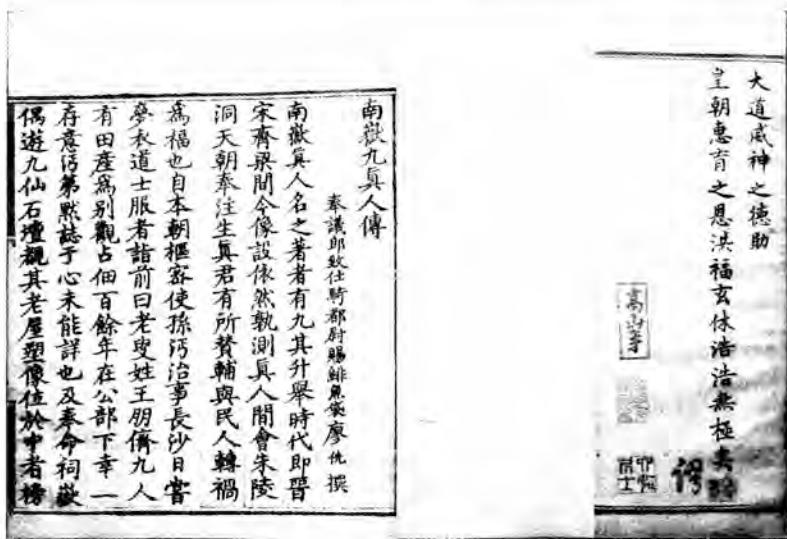 大道咸神之徳助
皇朝惠育之恩洪福玄休浩浩無極矣
高山寺
南嶽九眞人傳
奉議郎致仕騎都尉賜緋魚袋廖侁撰
南嶽眞人名之著者有九其升舉時代即晉
宋齊梁間今像設依然孰測眞人間會朱陵
洞天朝奉注生眞君有所賛輔與民人轉禍
爲福也自本朝樞宻使孫沔治事長沙日嘗
夢衣道士服者詣前曰老叟姓王朋儕九人
有田產爲别觀占佃百餘年在公部下幸一
存意沔第黙誌于心未能詳也及奉命祠嶽
偶遊九仙石壇觀其老屋塑像位於中者榜